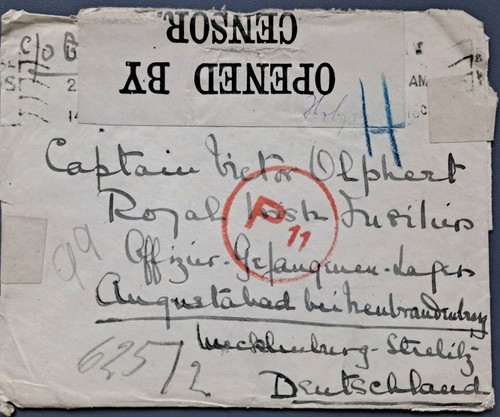 C/o G
OPENED BY
CENSOR.
AM
H
Captain Victor Olphert
Royal Irish Fusiliers
P 11
99
Offizier-Gefangenen-Lagers
Augustabad bei Neubrandenburg
Mecklenburg-Strelitz
Deutschland
625/2